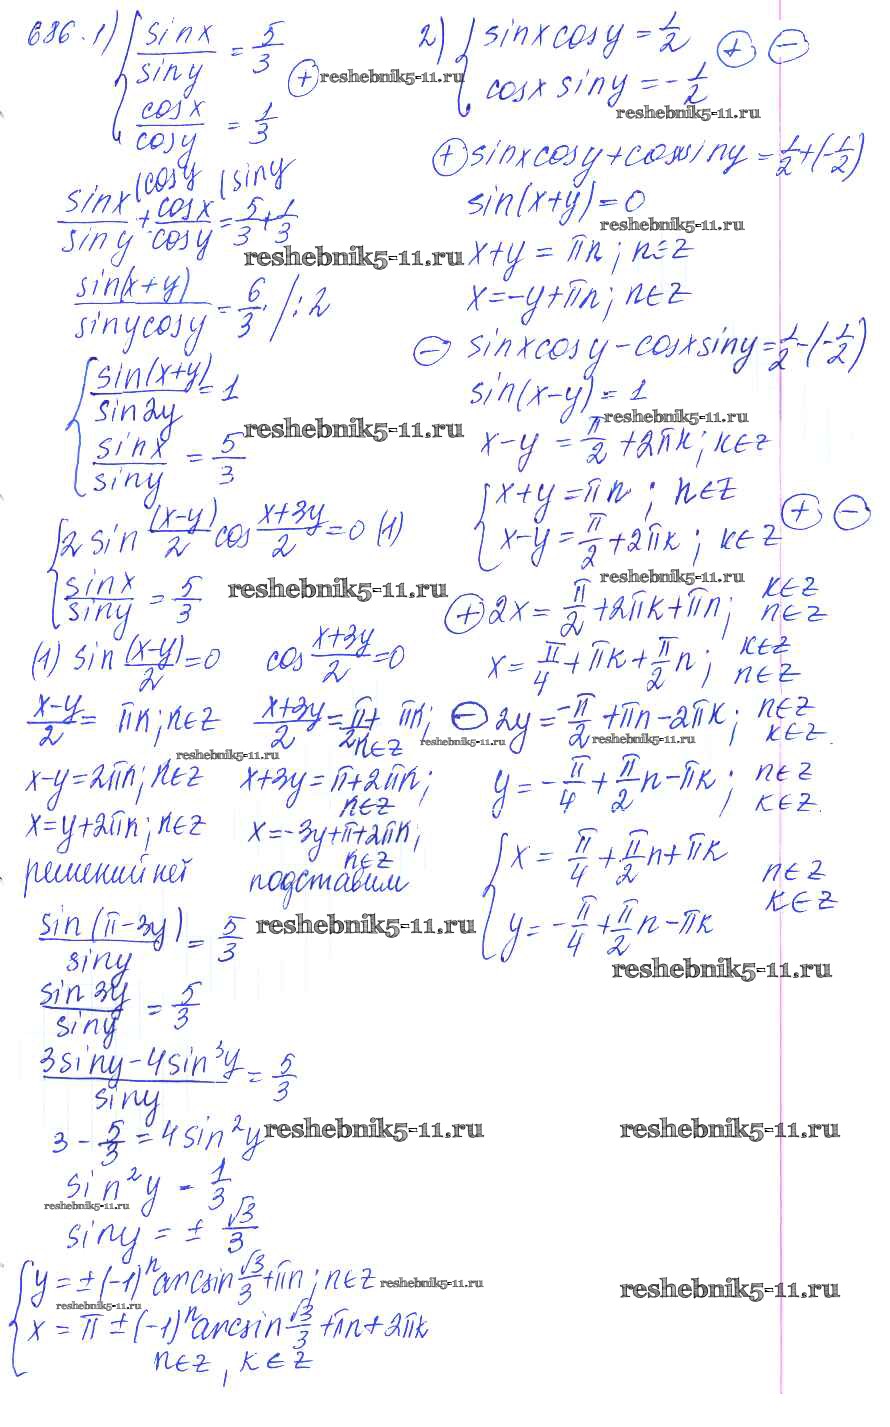 686. 1) { sinx/siny = 5/3
cosx/cosy = 1/3 ⊕
reshebnik5-11.ru
sinx/siny (cosy + cosx/cosy (siny = 5/3 + 1/3
reshebnik5-11.ru
sin(x+y)/sinycosy = 6/3 /:2
{ sin(x+y)/sin2y = 1
sinx/siny = 5/3
reshebnik5-11.ru
{ 2 sin (x-y)/2 cos (x+3y)/2 = 0 (1)
sinx/siny = 5/3
reshebnik5-11.ru
(1) sin (x-y)/2 = 0 cos (x+3y)/2 = 0
(x-y)/2 = πn; n∈Z (x+3y)/2 = π/2 + πn; n∈Z
reshebnik5-11.ru
x-y = 2πn; n∈Z x+3y = π+2πn; n∈Z
x = y+2πn; n∈Z x = -3y+π+2πn; n∈Z
решений нет подставим
sin(π-3y)/siny = 5/3
reshebnik5-11.ru
sin3y/siny = 5/3
(3siny - 4sin³y)/siny = 5/3
3 - 5/3 = 4sin²y
reshebnik5-11.ru
sin²y = 1/3
reshebnik5-11.ru
siny = ± √3/3
{ y = ±(-1)ⁿ arcsin √3/3 + πn; n∈Z
reshebnik5-11.ru
reshebnik5-11.ru
x = π ± (-1)ⁿ arcsin √3/3 + πn + 2πk
n∈Z, k∈Z
2) { sinxcosy = 1/2
cosx siny = -1/2 ⊕ ⊖
reshebnik5-11.ru
⊕ sinxcosy + cosxsiny = 1/2 + (-1/2)
sin(x+y) = 0
reshebnik5-11.ru
x+y = πn; n∈Z
x = -y+πn; n∈Z
⊖ sinxcosy - cosxsiny = 1/2 - (-1/2)
sin(x-y) = 1
reshebnik5-11.ru
x-y = π/2 + 2πk; k∈Z
{ x+y = πn; n∈Z
x-y = π/2 + 2πk; k∈Z ⊕ ⊖
reshebnik5-11.ru
⊕ 2x = π/2 + 2πk + πn; k∈Z n∈Z
x = π/4 + πk + π/2 n; k∈Z n∈Z
⊖ 2y = -π/2 + πn - 2πk; n∈Z k∈Z
reshebnik5-11.ru
reshebnik5-11.ru
y = -π/4 + π/2 n - πk; n∈Z k∈Z
{ x = π/4 + π/2 n + πk
y = -π/4 + π/2 n - πk n∈Z k∈Z
reshebnik5-11.ru
reshebnik5-11.ru
reshebnik5-11.ru